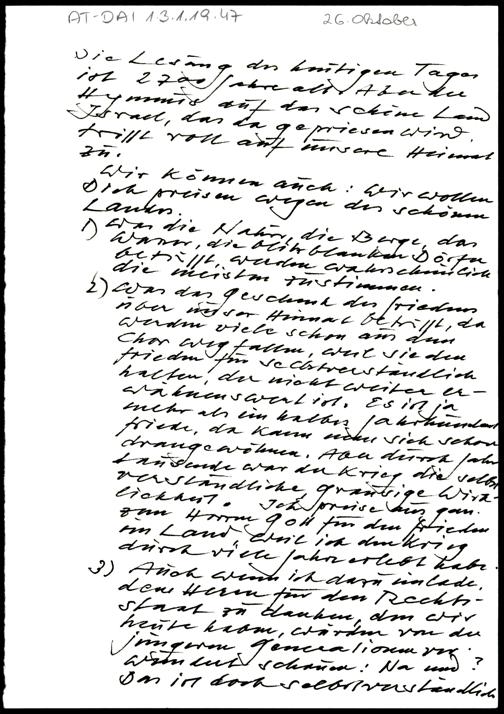 AT-DAI 1.3.1.19.47 26. Oktober
Die Lesung des heutigen Tages
ist 2700 Jahre alt. Aber der
Hymnus auf das schöne Land
Israel, das da gepriesen wird,
trifft voll auf unsere Heimat
zu.
Wir können auch: Wir wollen
Dich preisen wegen des schönen
Landes.
1) Was die Natur, die Berge, das
Wasser, die blitzblanken Dörfer
betrifft, werden wahrscheinlich
die meisten zustimmen.
2) Was das Geschenk des Friedens
über unser Heimat betrifft, da
werden viele schon aus dem
Chor wegfallen, weil sie den
Frieden für selbstverständlich
halten, der nicht weiter er-
wähnenswert ist. Es ist ja
mehr als ein halbes Jahrhundert
Friede, da kann man sich schon
drangewöhnen. Aber durch Jahr
tausende war der Krieg die selbst
verständliche, grausige Wirk
lichkeit. Ich preise aus gan-
zem Herzen Gott für den Frieden
im Land, weil ich den Krieg
durch viele Jahre erlebt habe.
3) Auch wenn ich dazu einlade,
dem Herrn für den Rechts-
staat zu danken, den wir
heute haben, würden von der
jüngeren Generationen ver-
wundert schauen: Na und?
Das ist doch selbstverständlich